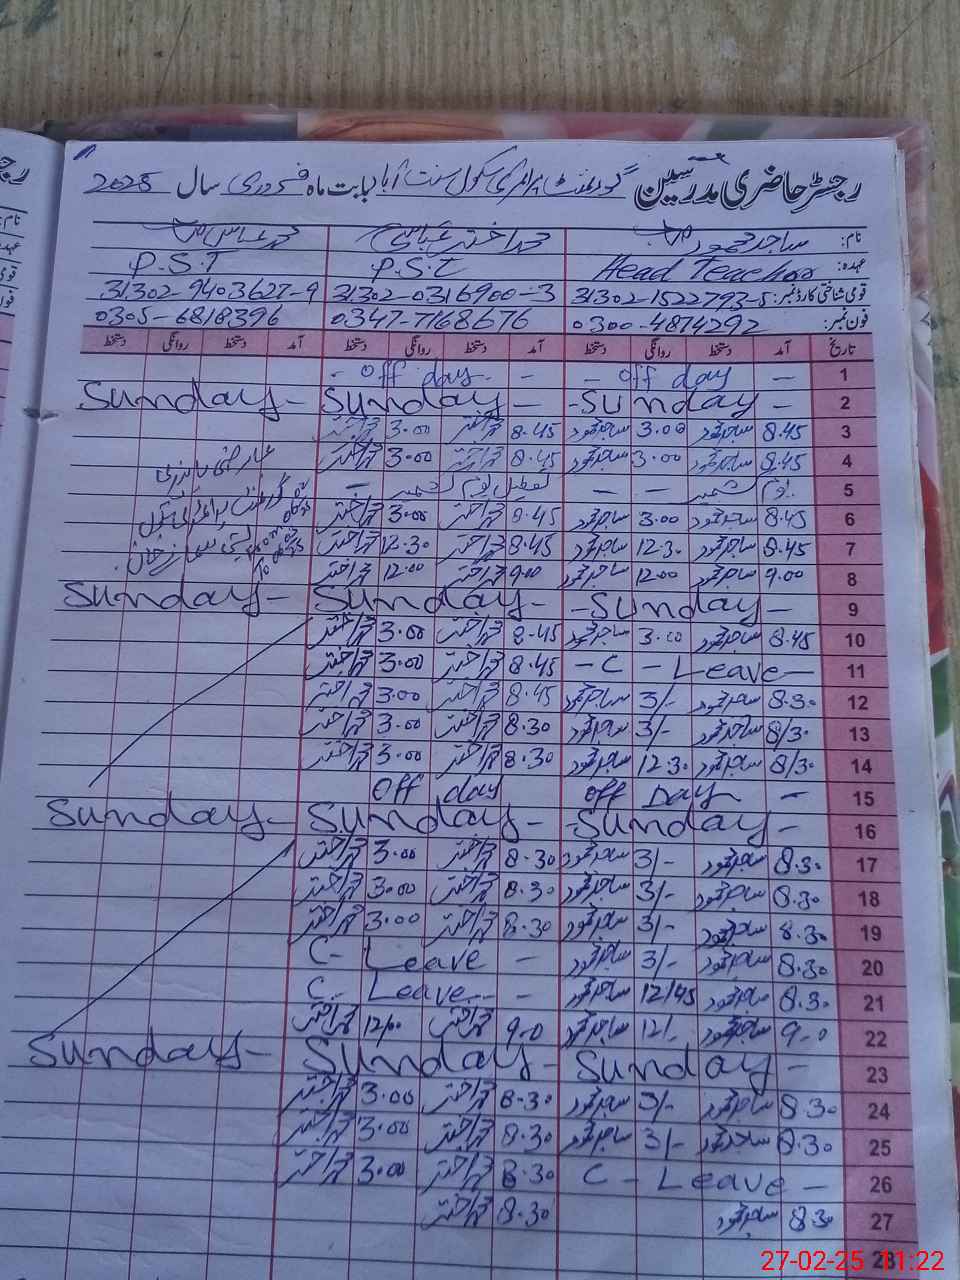 رجسٹر حاضری مدرسین گورنمنٹ پرائمری سکول سنت آباد بابت ماہ فروری سال 2025
نام: ساجد محمود محمد اختر عباسی محمد عباس
عہدہ: Head Teacher P.S.T P.S.T
قومی شناختی کارڈ نمبر: 31302-1522793-5 31302-0316900-3 31302-9403627-9
فون نمبر: 0300-4874292 0347-7168676 0305-6818396
تاریخ آمد دستخط روانگی دستخط آمد دستخط روانگی دستخط آمد دستخط روانگی دستخط
1 — off day — — off day -
2 - Sunday - Sunday - Sunday -
3 8.45 ساجد محمود 3.00 ساجد محمود 8.45 محمد اختر 3.00 محمد اختر
4 8.45 ساجد محمود 3.00 ساجد محمود 8.45 محمد اختر 3.00 محمد اختر عارضی
5 یوم کشمیر — — تعطیل یوم کشمیر — گورنمنٹ پرائمری سکول
6 8.45 ساجد محمود 3.00 ساجد محمود 8.45 محمد اختر 3.00 محمد اختر
7 8.45 ساجد محمود 12.30 ساجد محمود 8.45 محمد اختر 12.30 محمد اختر بستی
8 9.00 ساجد محمود 12.00 ساجد محمود 9.00 محمد اختر 12.00 محمد اختر
9 - Sunday - Sunday - Sunday -
10 8.45 ساجد محمود 3.00 ساجد محمود 8.45 محمد اختر 3.00 محمد اختر
11 - C - Leave - 8.45 محمد اختر 3.00 محمد اختر
12 8.30 ساجد محمود 3/- ساجد محمود 8.45 محمد اختر 3.00 محمد اختر
13 8/30 ساجد محمود 3/- ساجد محمود 8.30 محمد اختر 3.00 محمد اختر
14 8/30 ساجد محمود 12.30 ساجد محمود 8.30 محمد اختر 3.00 محمد اختر
15 off Day — off day
16 - Sunday - Sunday - Sunday -
17 8.30 ساجد محمود 3/- ساجد محمود 8.30 محمد اختر 3.00 محمد اختر
18 8.30 ساجد محمود 3/- ساجد محمود 8.30 محمد اختر 3.00 محمد اختر
19 8.30 ساجد محمود 3/- ساجد محمود 8.30 محمد اختر 3.00 محمد اختر
20 8.30 ساجد محمود 3/- ساجد محمود C - Leave -
21 8.30 ساجد محمود 12/45 ساجد محمود C - Leave -
22 9-0 ساجد محمود 12/- ساجد محمود 9-0 محمد اختر 12/0 محمد اختر
23 Sunday - Sunday - Sunday -
24 8.30 ساجد محمود 3/- ساجد محمود 8.30 محمد اختر 3.00 محمد اختر
25 8.30 ساجد محمود 3/- ساجد محمود 8.30 محمد اختر 3.00 محمد اختر
26 C - Leave - 8.30 محمد اختر 3.00 محمد اختر
27 8.30 ساجد محمود 8.30 محمد اختر
28
27-02-25 11:22